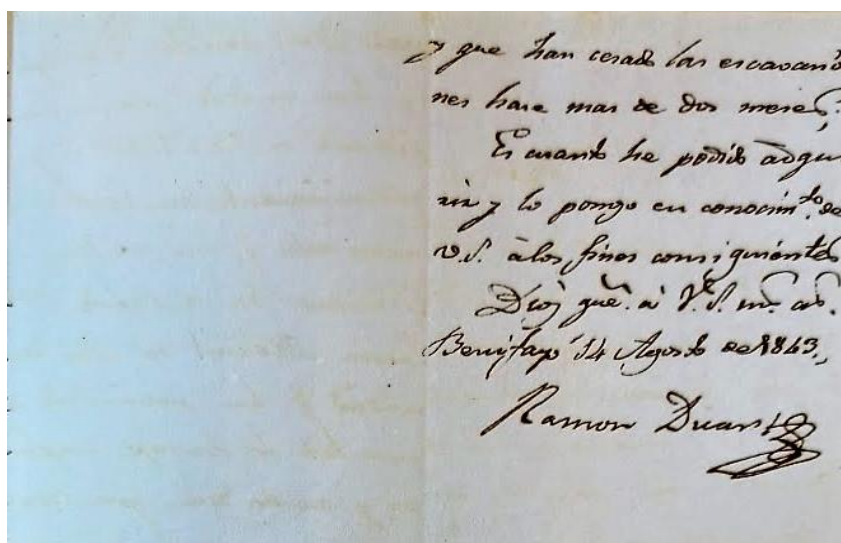 y que han cesado las escavacio
nes hace mas de dos meses,
Es cuanto he podido adqui
rir y lo pongo en conocimto. de
V.S. à los fines consiguientes
Dios gue. à V.S. ms. as.
Benifayó 14 Agosto de 1843.,
Ramon Duart